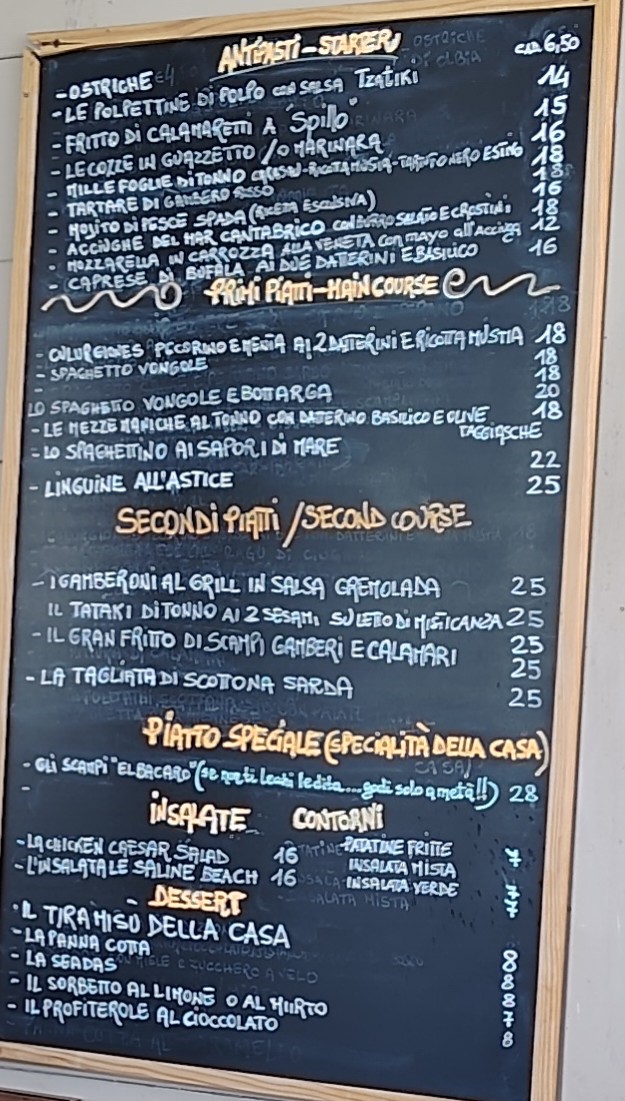 ANTIPASTI - STARTER
- OSTRICHE CAD. 6,50
- LE POLPETTINE DI POLPO CON SALSA TZATIKI 14
- FRITTO DI CALAMARETTI A "Spillo" 15
- LE COZZE IN GUAZZETTO / O MARINARA 16
- MILLE FOGLIE DI TONNO CARASAU - RICOTTA MUSTIA - TARTUFO NERO ESTIVO 18
- TARTARE DI GAMBERO ROSSO 18
- MOJITO DI PESCE SPADA (RICETTA ESCLUSIVA) 16
- ACCIUGHE DEL MAR CANTABRICO CON BURRO SALATO E CROSTINI 18
- MOZZARELLA IN CARROZZA ALLA VENETA con mayo all'Acciuga 12
- CAPRESE DI BUFALA AI DUE DATTERINI E BASILICO 16
PRIMI PIATTI - MAIN COURSE
- CULURGIONES PECORINO E MENTA AI 2 DATTERINI E RICOTTA MUSTIA 18
- SPAGHETTO VONGOLE 18
- 18
LO SPAGHETTO VONGOLE E BOTTARGA 20
- LE MEZZE MANICHE AL TONNO CON DATTERINO BASILICO E OLIVE 18
TAGGIASCHE
- LO SPAGHETTINO AI SAPORI DI MARE 22
- LINGUINE ALL'ASTICE 25
SECONDI PIATTI / SECOND COURSE
- I GAMBERONI AL GRILL IN SALSA GREMOLADA 25
IL TATAKI DI TONNO AI 2 SESAMI SU LETTO DI MISTICANZA 25
- IL GRAN FRITTO DI SCAMPI GAMBERI E CALAMARI 25
25
- LA TAGLIATA DI SCOTTONA SARDA 25
PIATTO SPECIALE (SPECIALITÀ DELLA CASA)
- GLI SCAMPI "EL BACARO" (se non ti lecchi le dita.... godi solo a metà!!) 28
-
INSALATE CONTORNI
- LA CHICKEN CAESAR SALAD 16 PATATINE FRITTE 7
- L'INSALATA LE SALINE BEACH 16 INSALATA MISTA 7
INSALATA VERDE 7
- DESSERT
IL TIRAMISU DELLA CASA 8
- LA PANNA COTTA 8
- LA SEADAS 8
- IL SORBETTO AL LIMONE O AL MIRTO 7
- IL PROFITEROLE AL CIOCCOLATO 8